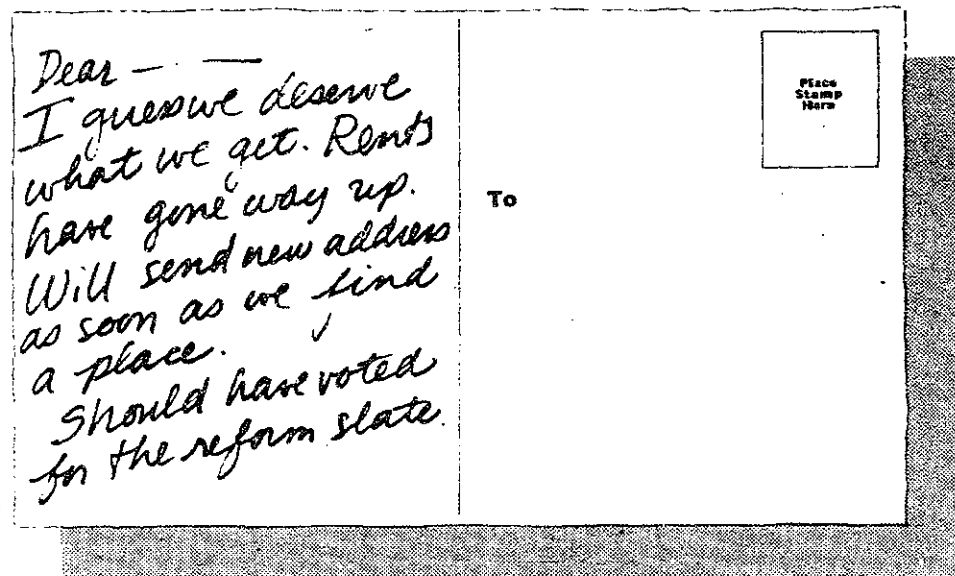 Dear — —
I guess we deserve
what we get. Rents
have gone way up.
Will send new address
as soon as we find
a place.
Should have voted
for the reform slate.
Place
Stamp
Here
To